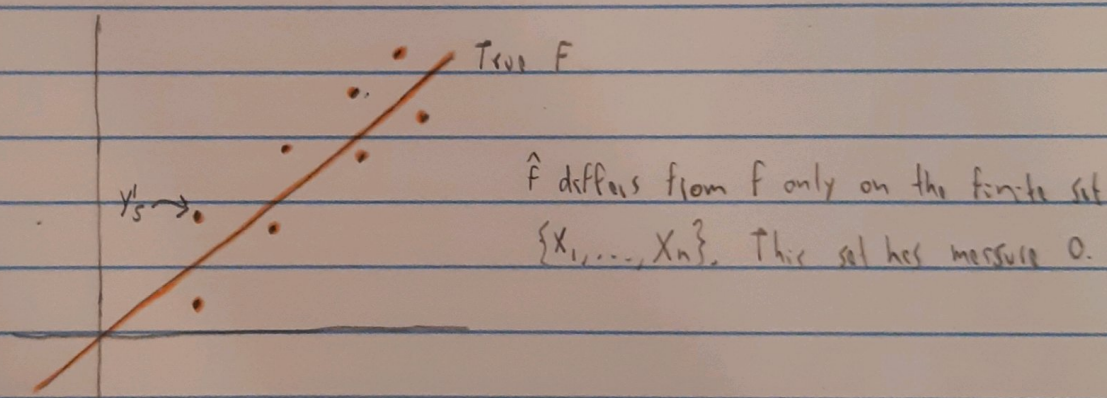 True F
Y's
f̂ differs from f only on the finite set
{X₁,..., Xn}. This set has measure 0.